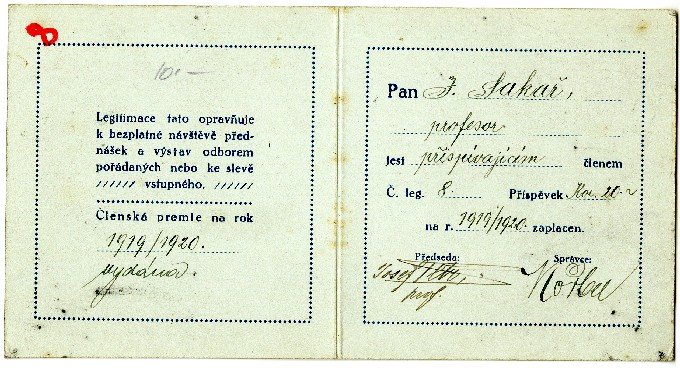 8
10.—
Legitimace tato opravňuje
k bezplatné návštěvě před-
nášek a výstav odborem
pořádaných nebo ke slevě
vstupného.
Členská premie na rok
1919/1920.
vydána.
Pan J. Sakař,
profesor
jest přispívajícím členem
Č. leg. 8 Příspěvek Kor. 20.–
na r. 1919/1920 zaplacen.
Předseda: Správce:
Josef
prof.